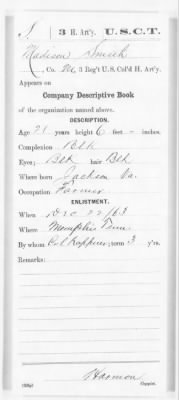 S | 3 H. Art'y. | U.S.C.T.
Madison Smith
, Co. 3 Reg't U.S. Col'd H. Art'y.
Appears on
Company Descriptive Book
of the organization named above.
DESCRIPTION.
Age 21 years; height 6 feet – inches.
Complexion Blk
Eyes; Blk hair Blk
Where born Jackson
Occupation Farmer
ENLISTMENT.
When Dec 22/63
Where Memphis Tenn.
By whom Col. ; term 3 y'rs.
Remarks:
Harmon
Copyist.